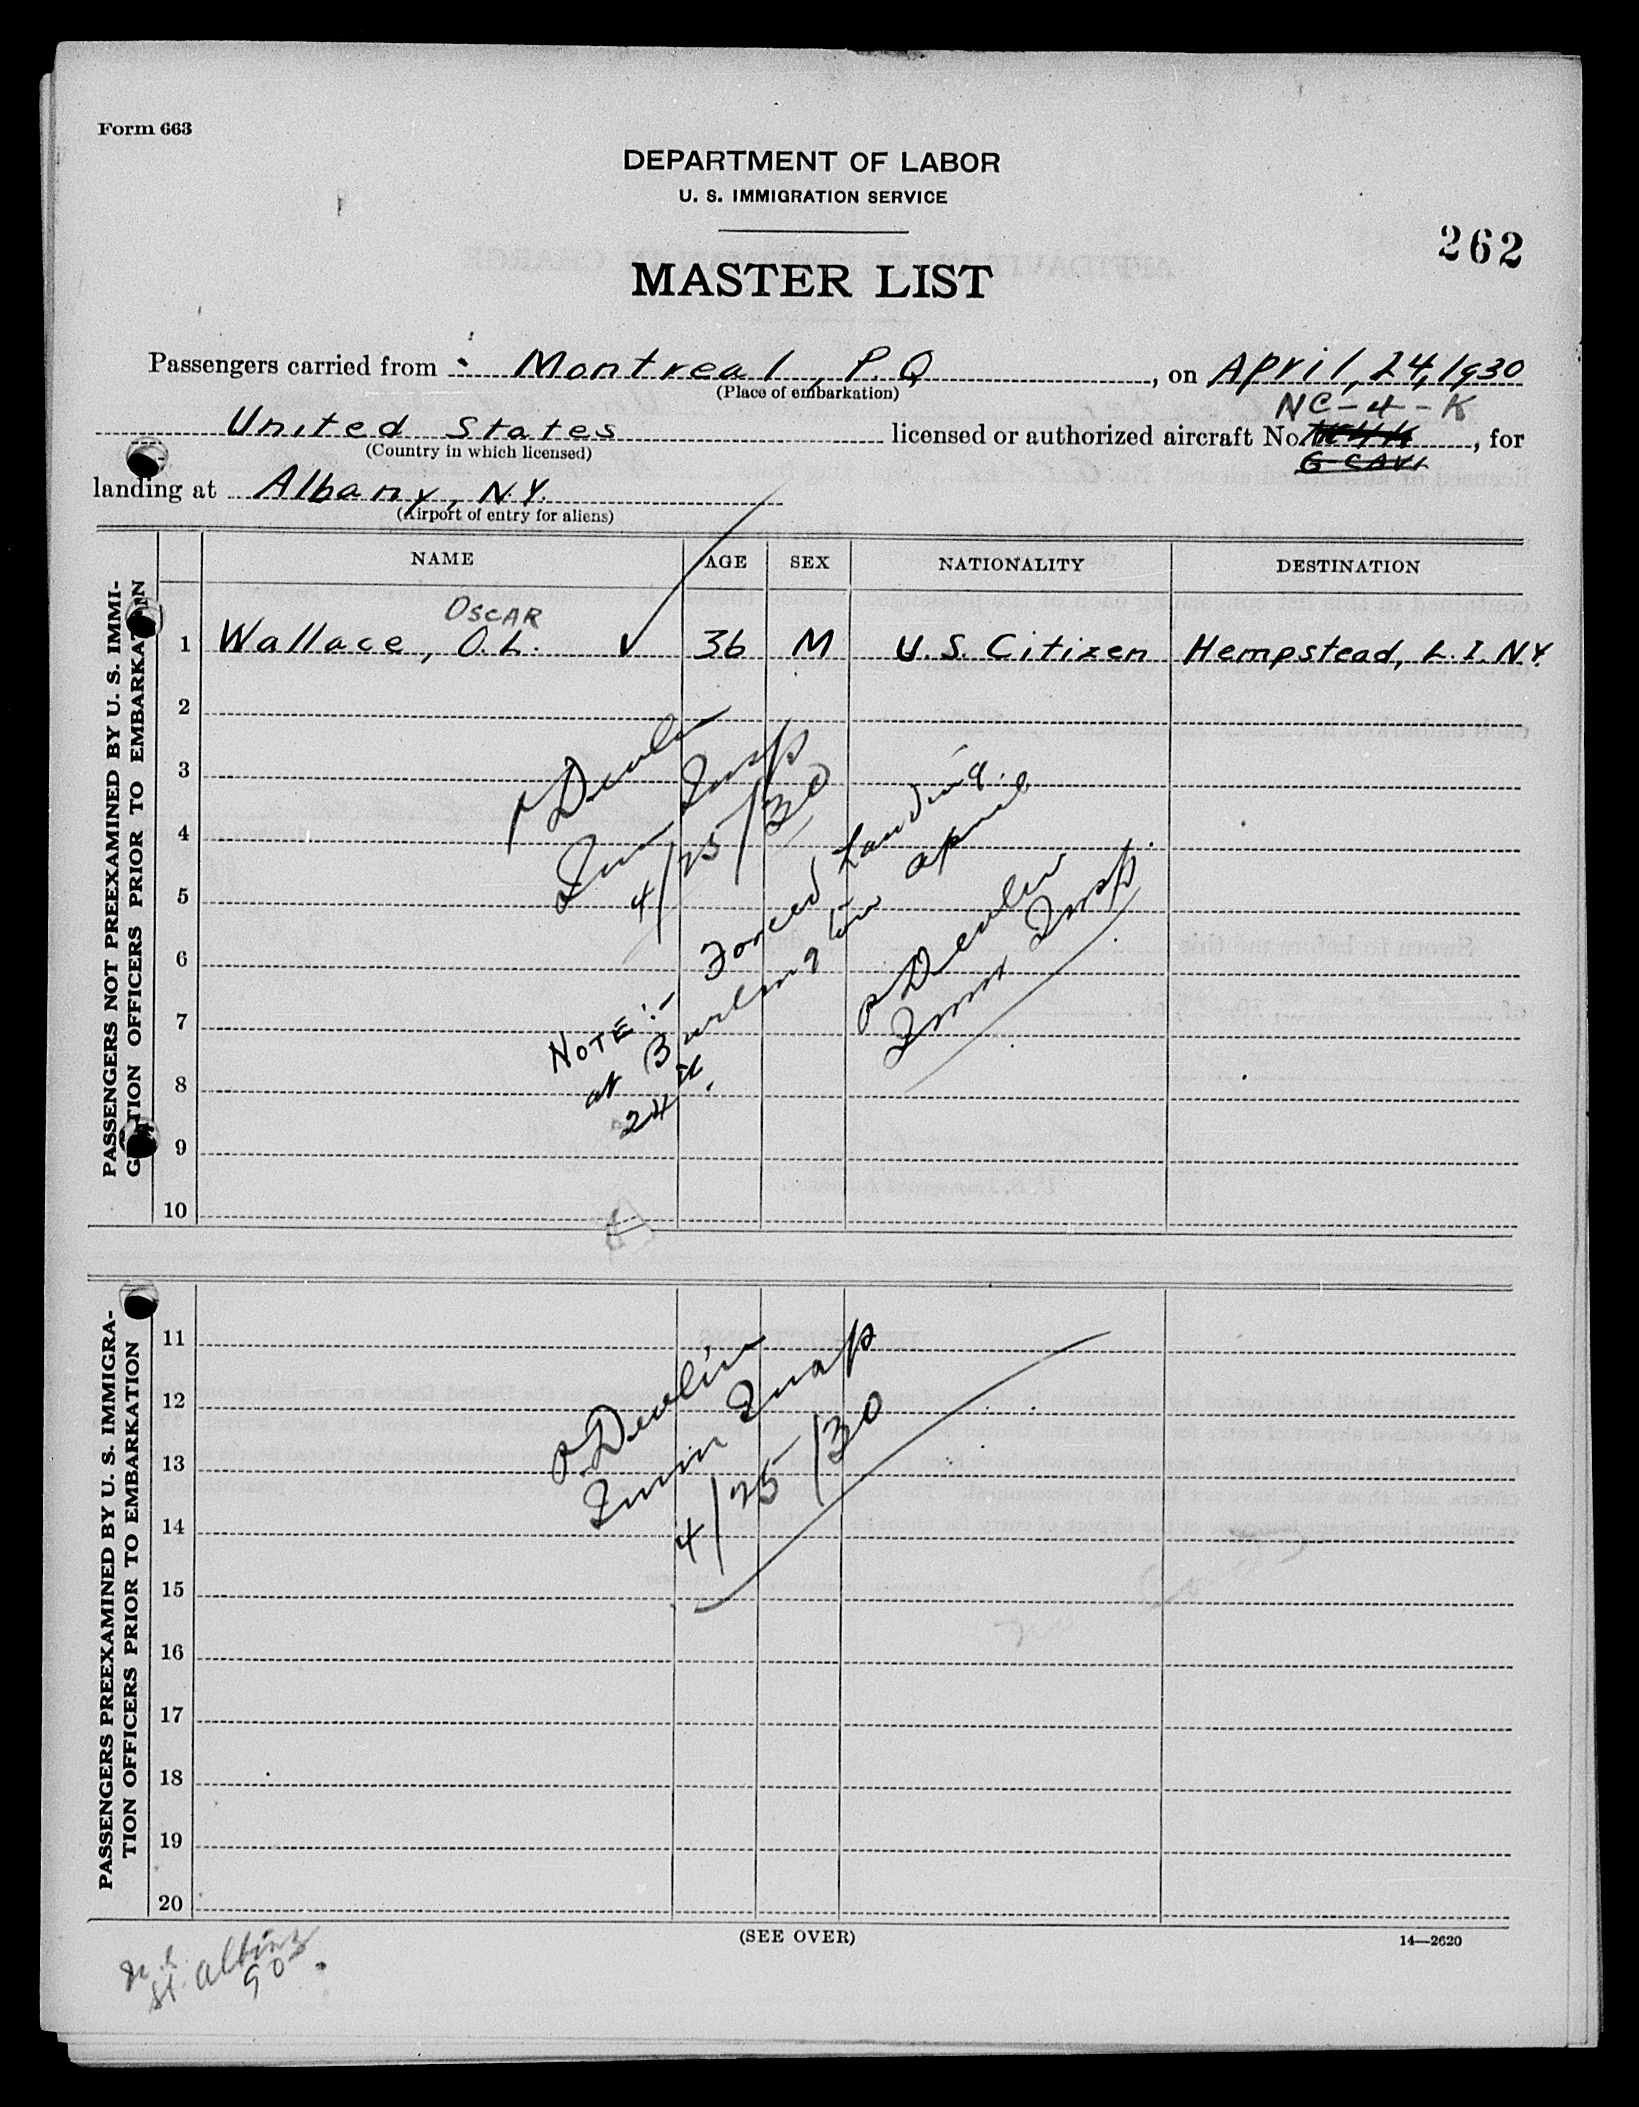 Form 663
DEPARTMENT OF LABOR
U. S. IMMIGRATION SERVICE
262
MASTER LIST
Passengers carried from Montreal, P.Q, on April, 24, 1930
(Place of embarkation)
NC-4-K
United States licensed or authorized aircraft No., for
(Country in which licensed)
G CAVL
landing at Albany, N.Y.
(Airport of entry for aliens)
NAME AGE SEX NATIONALITY DESTINATION
PASSENGERS NOT PREEXAMINED BY U. S. IMMI-
GRATION OFFICERS PRIOR TO EMBARKATION
OSCAR
1 Wallace, O.L. 36 M U.S. Citizen Hempstead, L.I. N.Y.
2
3
4
5
6
7
8
9
10
P Devlin
Imm Insp
4/25/30
NOTE:- Forced Landing
at Burlington April
24th.
P Devlin
Imm Insp.
PASSENGERS PREEXAMINED BY U. S. IMMIGRA-
TION OFFICERS PRIOR TO EMBARKATION
11
12
13
14
15
16
17
18
19
20
P Devlin
Imm Insp
4/25/30
(SEE OVER)
14—2620
St. Albans